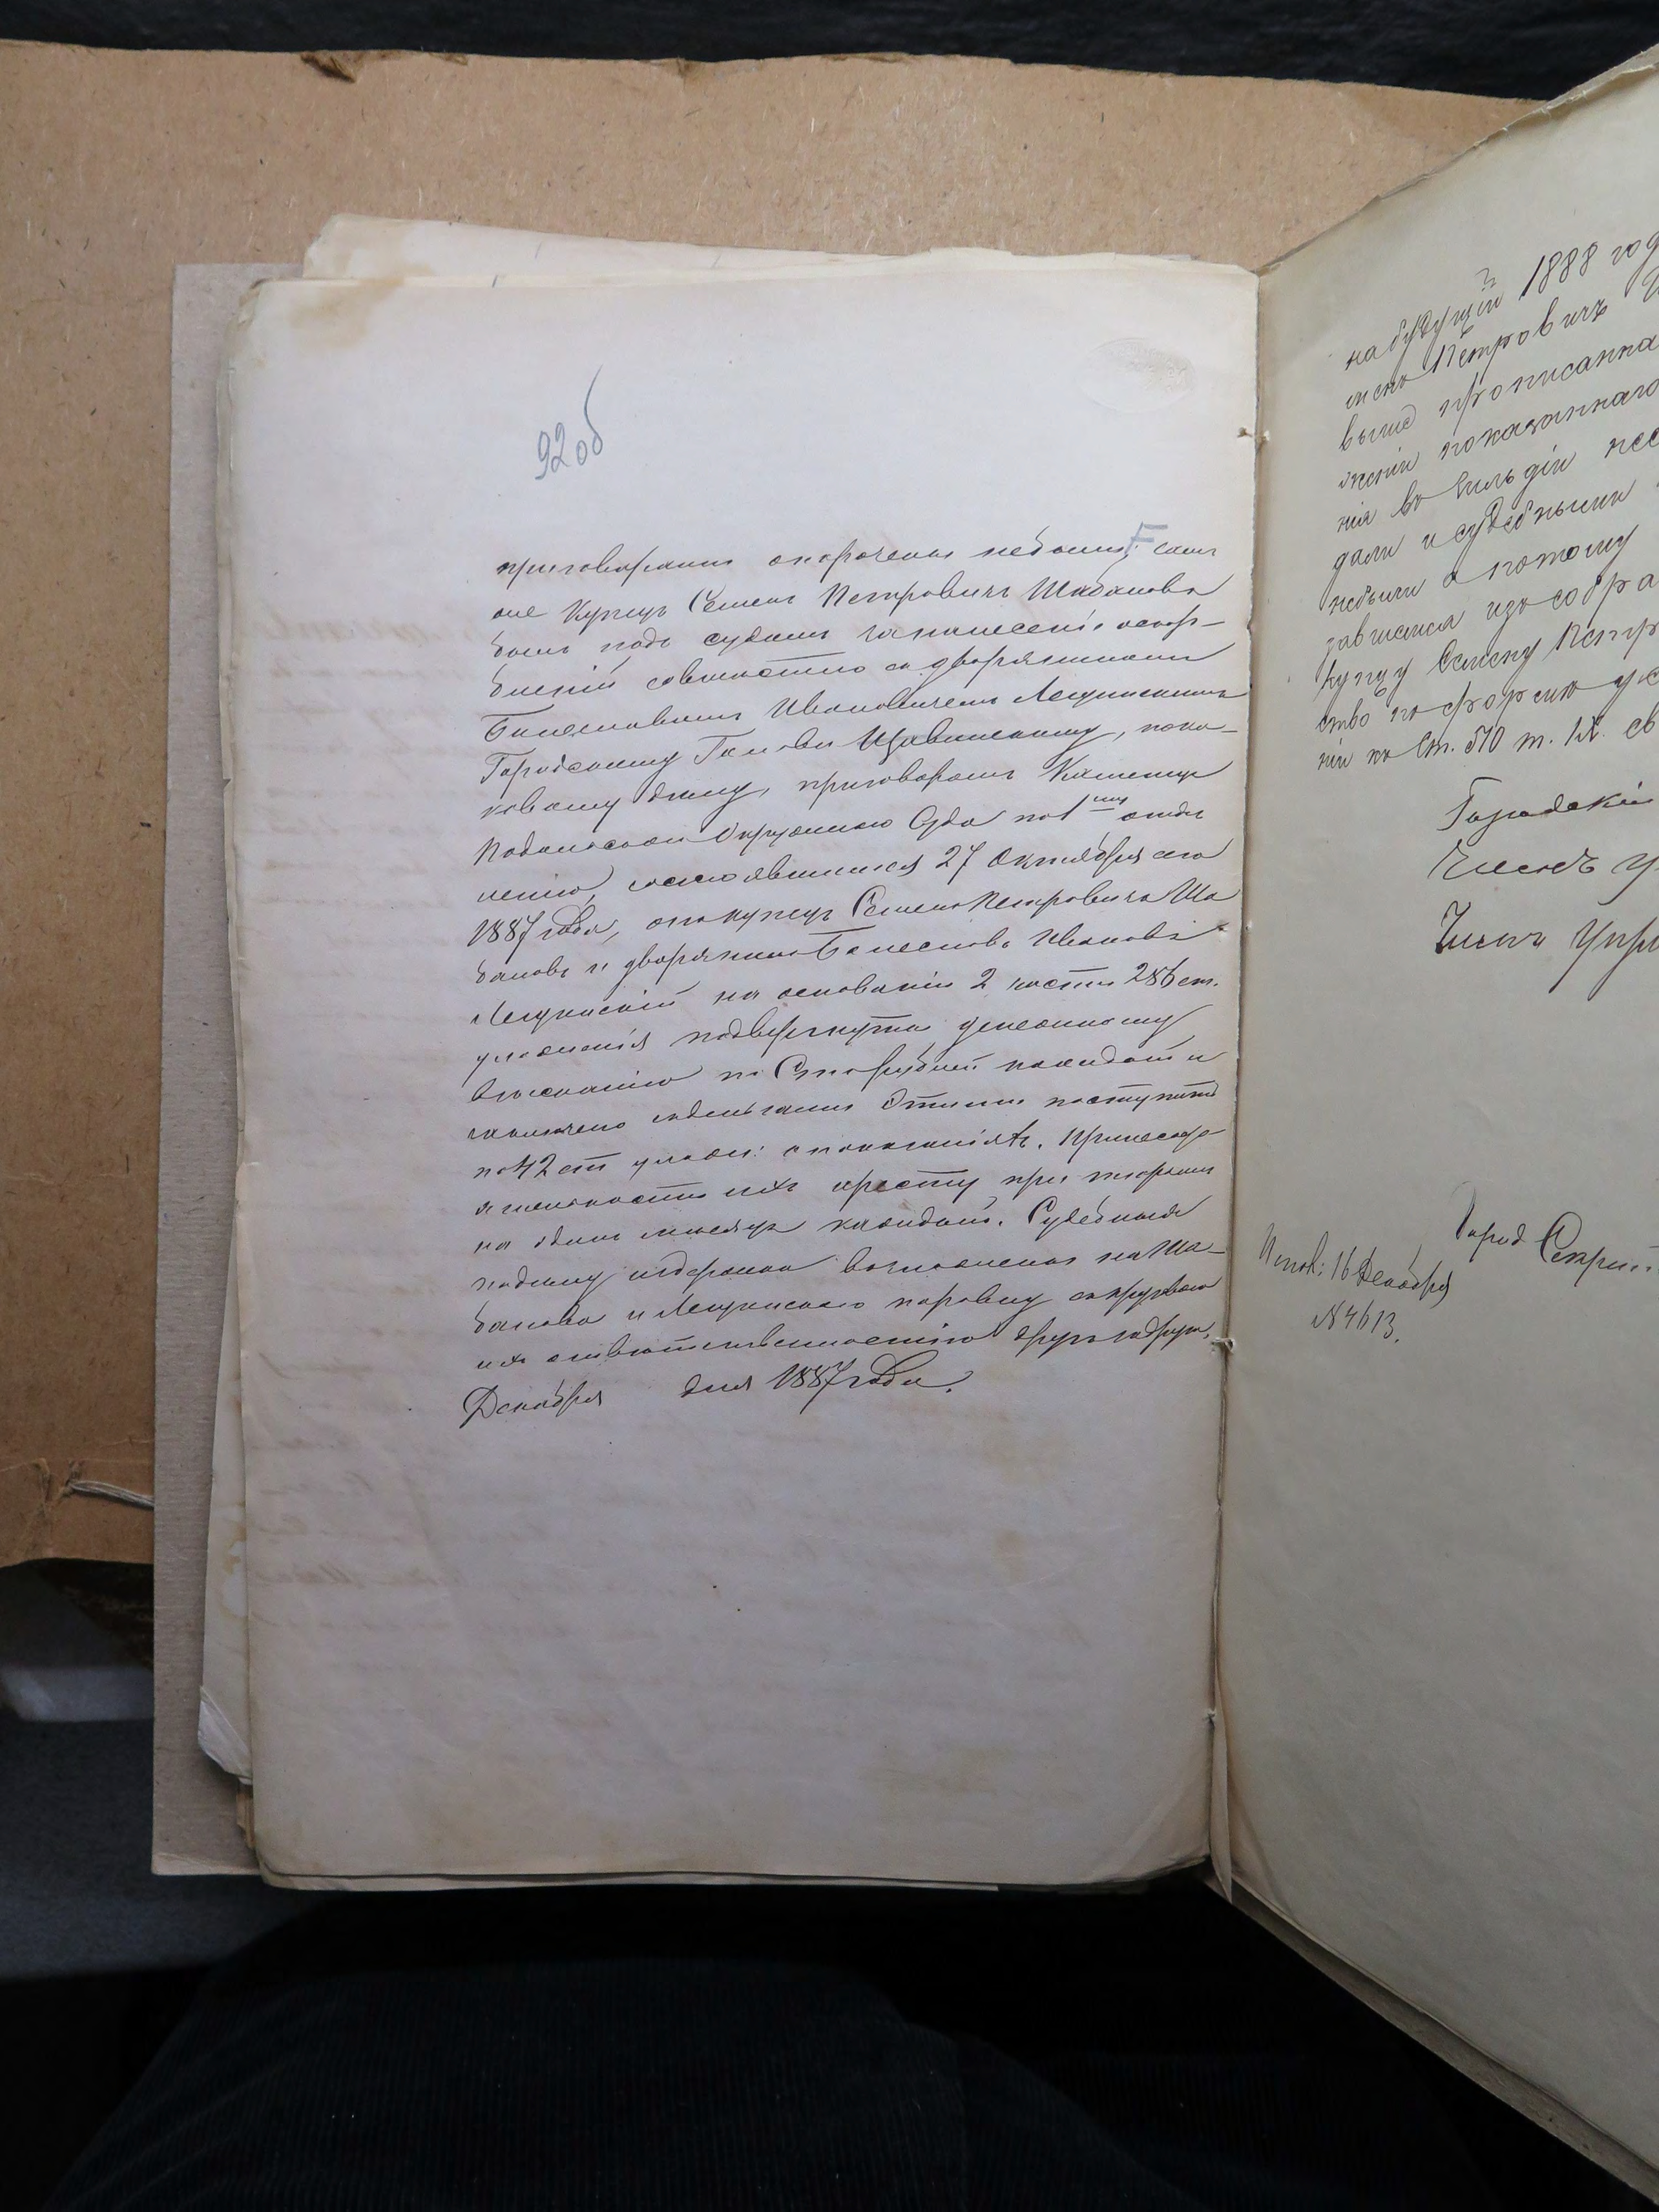 92 об
приговорами опорочены небыли; самъ
же Купецъ Семенъ Петровичъ Шабановъ
былъ подъ судомъ за нанесеніе оскор-
бленій совместно съ дворяниномъ
Болеславомъ Ивановичемъ Лещинскимъ
Городскому Головѣ Щавинскому, пока-
ковому дѣлу, приговоромъ Каменецъ
Подольскаго Окружнаго Суда по 1му отдѣ
ленію, состоявшимся 27 Октября сего
1887 года, онъ купецъ Семенъ Петровичъ Ша
бановъ и дворянинъ Болеславъ Ивановъ
Лещинскій на основаніи 2 части 286 ст.
уложенія подвергнуты денежному
взысканію по сто рублей каждый и
заключено съ деньгами этими поступить
по 42 ст улож: о наказаніяхъ. При несосто
ятельности ихъ аресту при тюрьмѣ
на одинъ мѣсяцъ каждый. Судебныя
по дѣлу издержки возложены на Ша-
банова и Лещинскаго поровну съ круговою
ихъ отвѣтственностію другъ за друга.
Декабря дня 1887 года.
на будущій 1888 год
менъ Петровичъ
выше прописанна
женіи показаннаго
нія въ гильдіи
дали и судебными
небыли а потому
зависися изъ собра
купцу Семену Петр
ство по формѣ ус
ніи къ Ст. 510 т. IX. св
Городскій
Членъ У
Членъ Упр
Город Секрет
Испол: 16 Декабря
№ 4613.